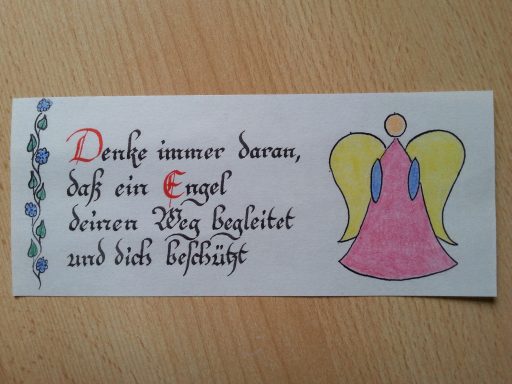 Denke immer daran,
daß ein Engel
deinen Weg begleitet
und dich beschützt